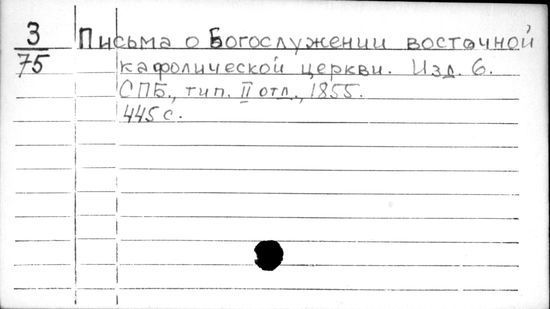 3 Письма о Богослужении восточной
75 кафолической церкви. Изд. 6.
СПБ., тип. II отд., 1855.
445 с.